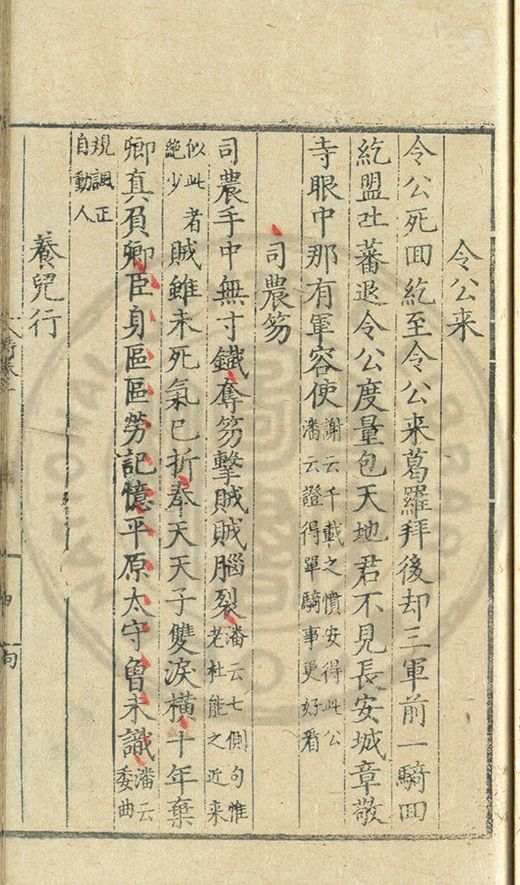 令公来
令公死回紇至令公来葛羅拜後却三軍前一騎回
紇盟吐蕃退令公度量包天地君不見長安城章敬
寺眼中那有軍容使
謝云千載之憤安得此公
潘云證得單騎事更好看
司農笏
司農手中無寸鐵奪笏擊賊賊腦裂
潘云七側句惟
老杜能之近来
似此者
絶少
賊雖未死氣已折奉天天子雙淚橫十年棄
卿真負卿臣身區區勞記憶平原太守曾未識
潘云
委曲
規諷正
自動人
養兒行